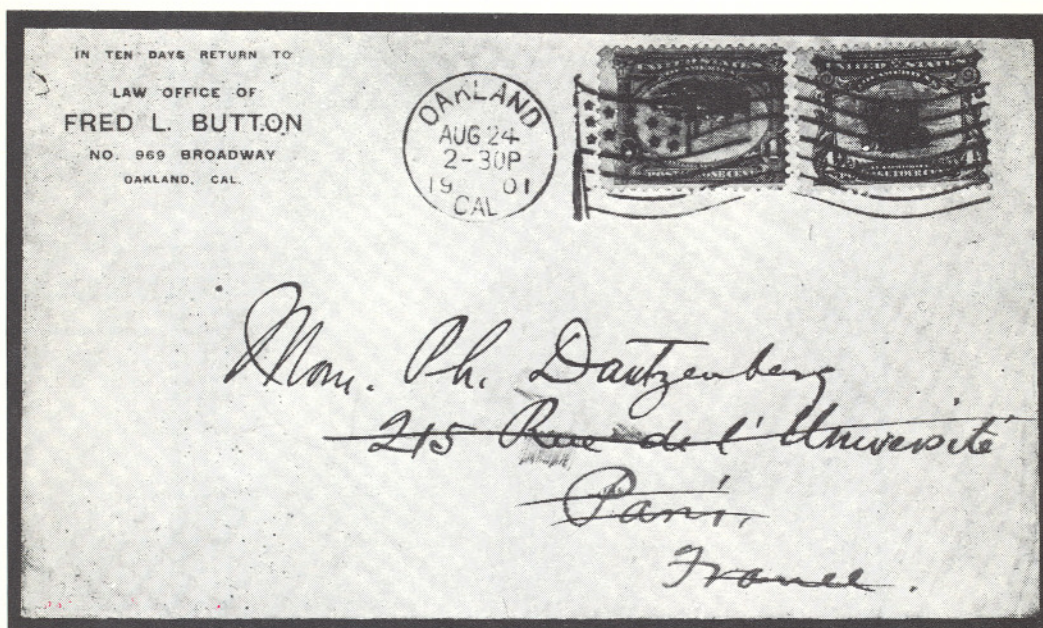 IN TEN DAYS RETURN TO
LAW OFFICE OF
FRED L. BUTTON
NO. 969 BROADWAY
OAKLAND, CAL.
OAKLAND
AUG 24
2-30P
19 01
CAL
UNITED STATES
POSTAGE ONE CENT
UNITED STATES
POSTAGE FOUR CENTS
Mon. Ph. Dautzenberg
215 Rue de l'Université
Paris.
France.